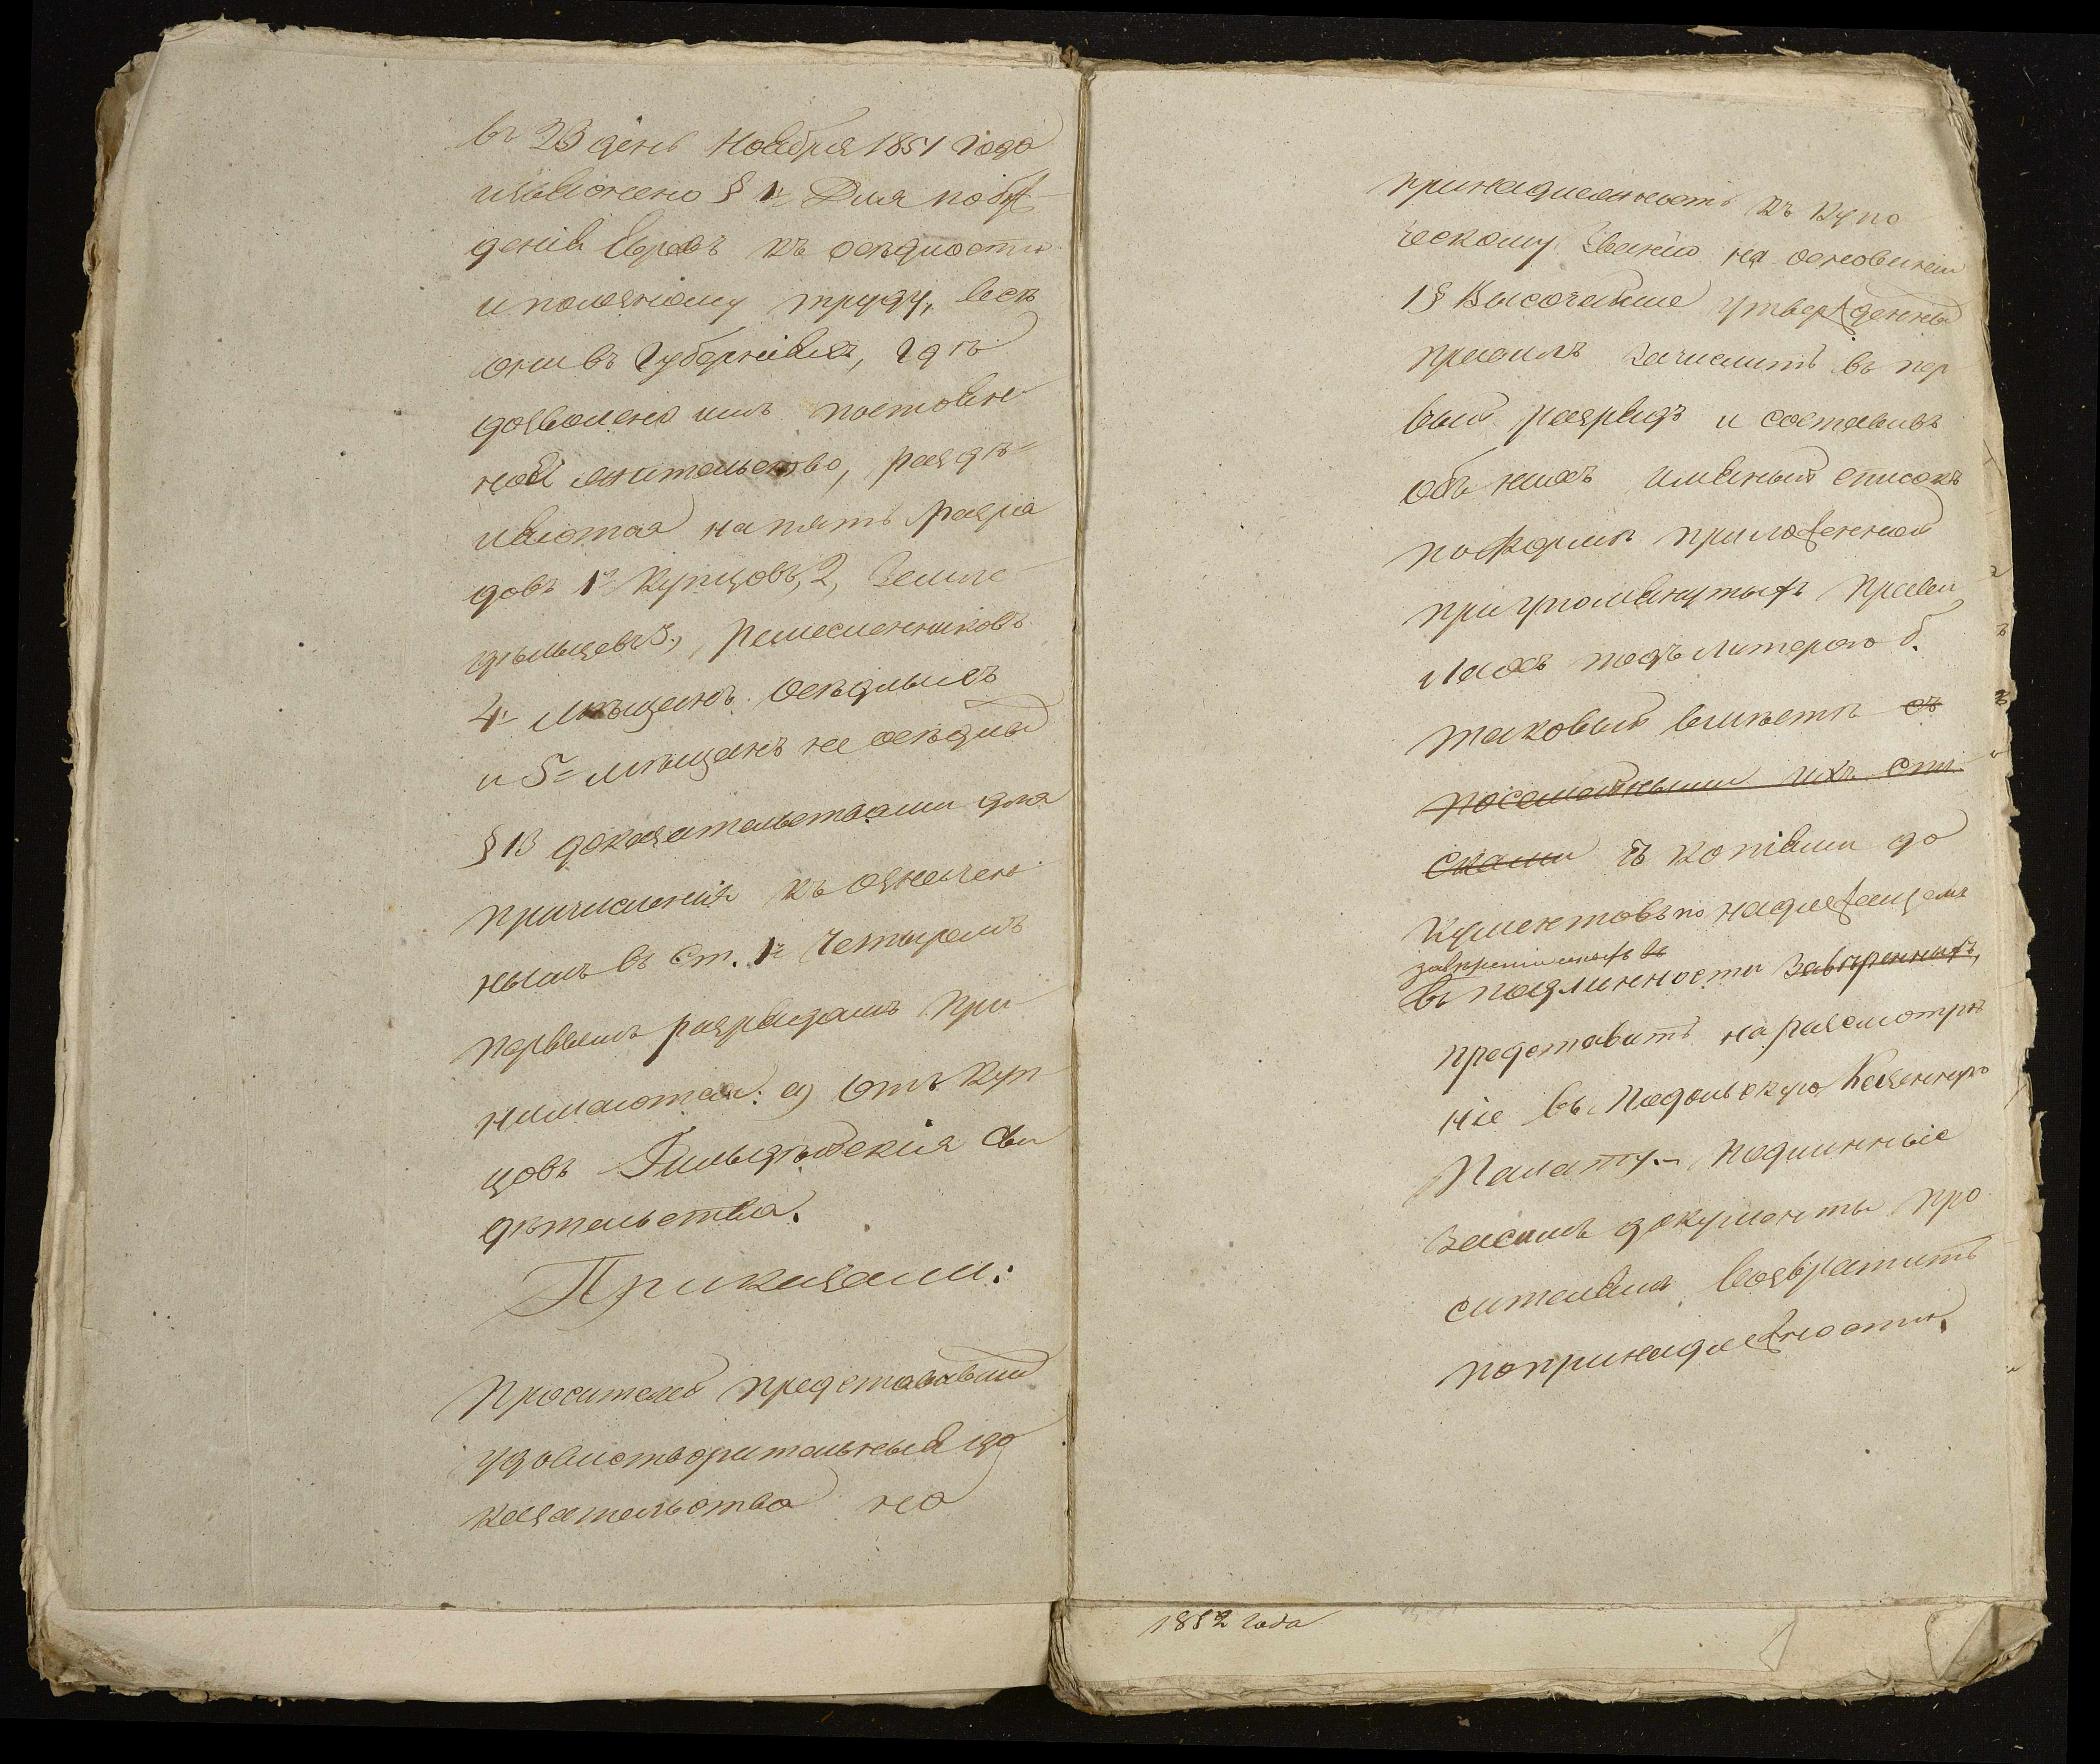 въ 23 день Ноября 1851 года
изъяснено § 1й Для побуж
денія Евреевъ къ осѣдлости
и полезному труду, всѣ
они въ Губерніяхъ, гдѣ
дозволено имъ постоян
ное жительство, раздѣ
ляются на пять разря
довъ 1е Купцовъ, 2, Земле
дѣльцевъ 3, Ремесленниковъ
4е Мѣщанъ осѣдлыхъ
и 5е мѣщанъ не осѣдлых
§ 13 доказательствами для
причисленія къ означен
нымъ въ ст. 1й четыремъ
первымъ разрядамъ при
нимаются: а) Отъ Куп
цовъ Гильдѣйскія Сви
дѣтельства.
Приказали:
Просителей представивших
удовлетворительныя до
казательства на
принадлежность къ купе
ческому Званію на основаніи
1§ Высочайше утвержденных
правилъ зачислить въ пер
вый разрядъ и составивъ
объ нихъ имянный списокъ
по формѣ приложенной
при упомянутыхъ Прави
лахъ подъ литерою б.
таковый вмѣстѣ съ
посемейными ихъ спи
сками съ копіями до
кументовъ по надлежащемъ
завѣреніи ихъ въ
въ подлинности завѣренныхъ,
представить на разсмотрѣ
ніе въ Подольскую Казенную
Палату.- Подлинные
засимъ документы про
сителямъ возвратить
по принадлежности.
1852 года